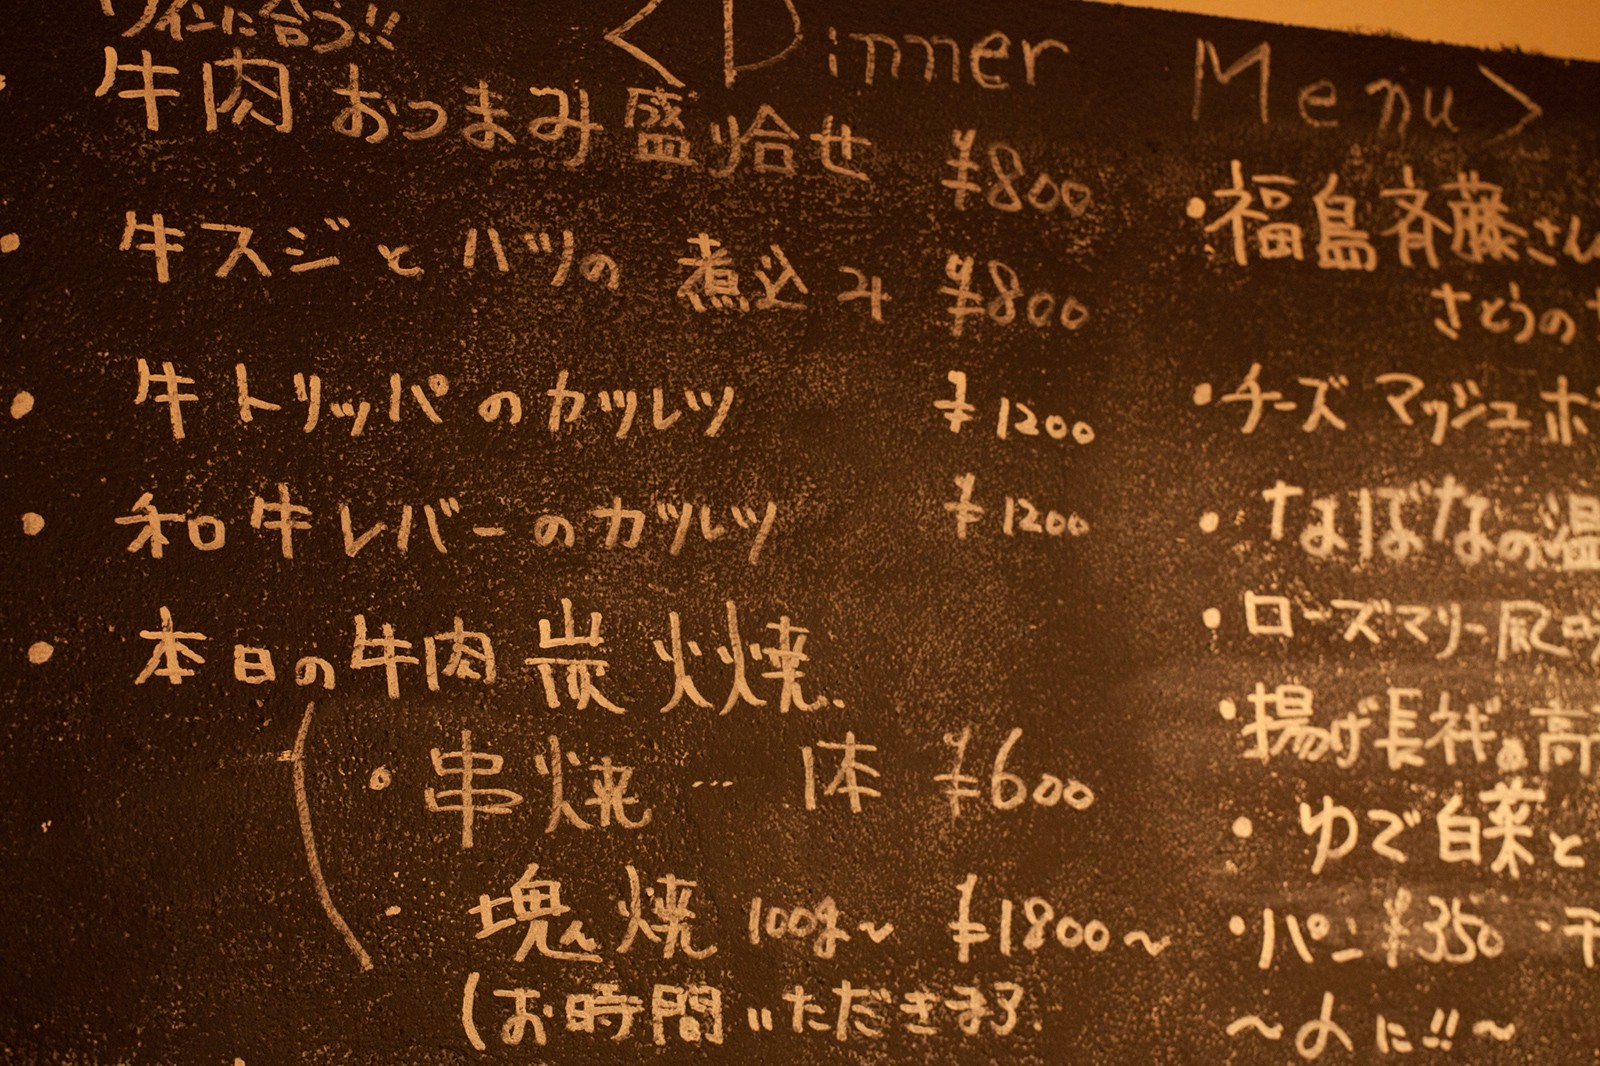 ワインに合う!!
<Dinner Menu>
牛肉おつまみ盛り合せ ¥800
・牛スジとハツの煮込み ¥800
・牛トリッパのカツレツ ¥1200
・和牛レバーのカツレツ ¥1200
・本日の牛肉炭火焼
・串焼…1本 ¥600
・塊焼 100g~ ¥1800~
(お時間いただきます
・福島斉藤さん
さとうの
・チーズマッシュポ
・なばなの温
・ローズマリー風
・揚げ長芋の高
・ゆで白菜と
・パン ¥350